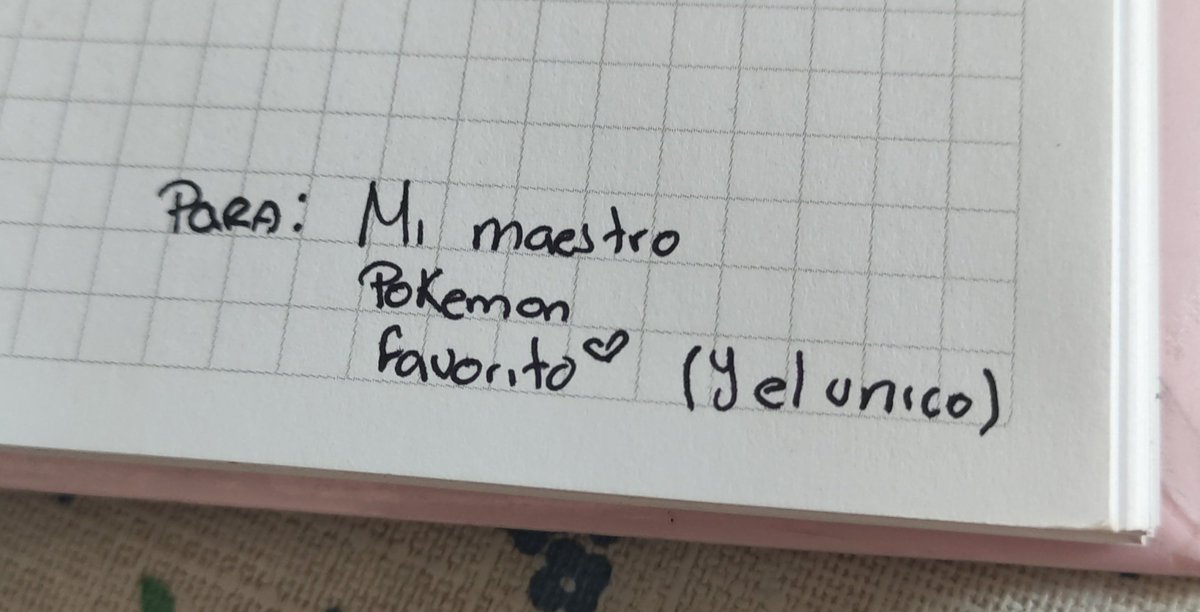 PARA: Mi maestro
Pokemon
favorito♡ (y el unico)